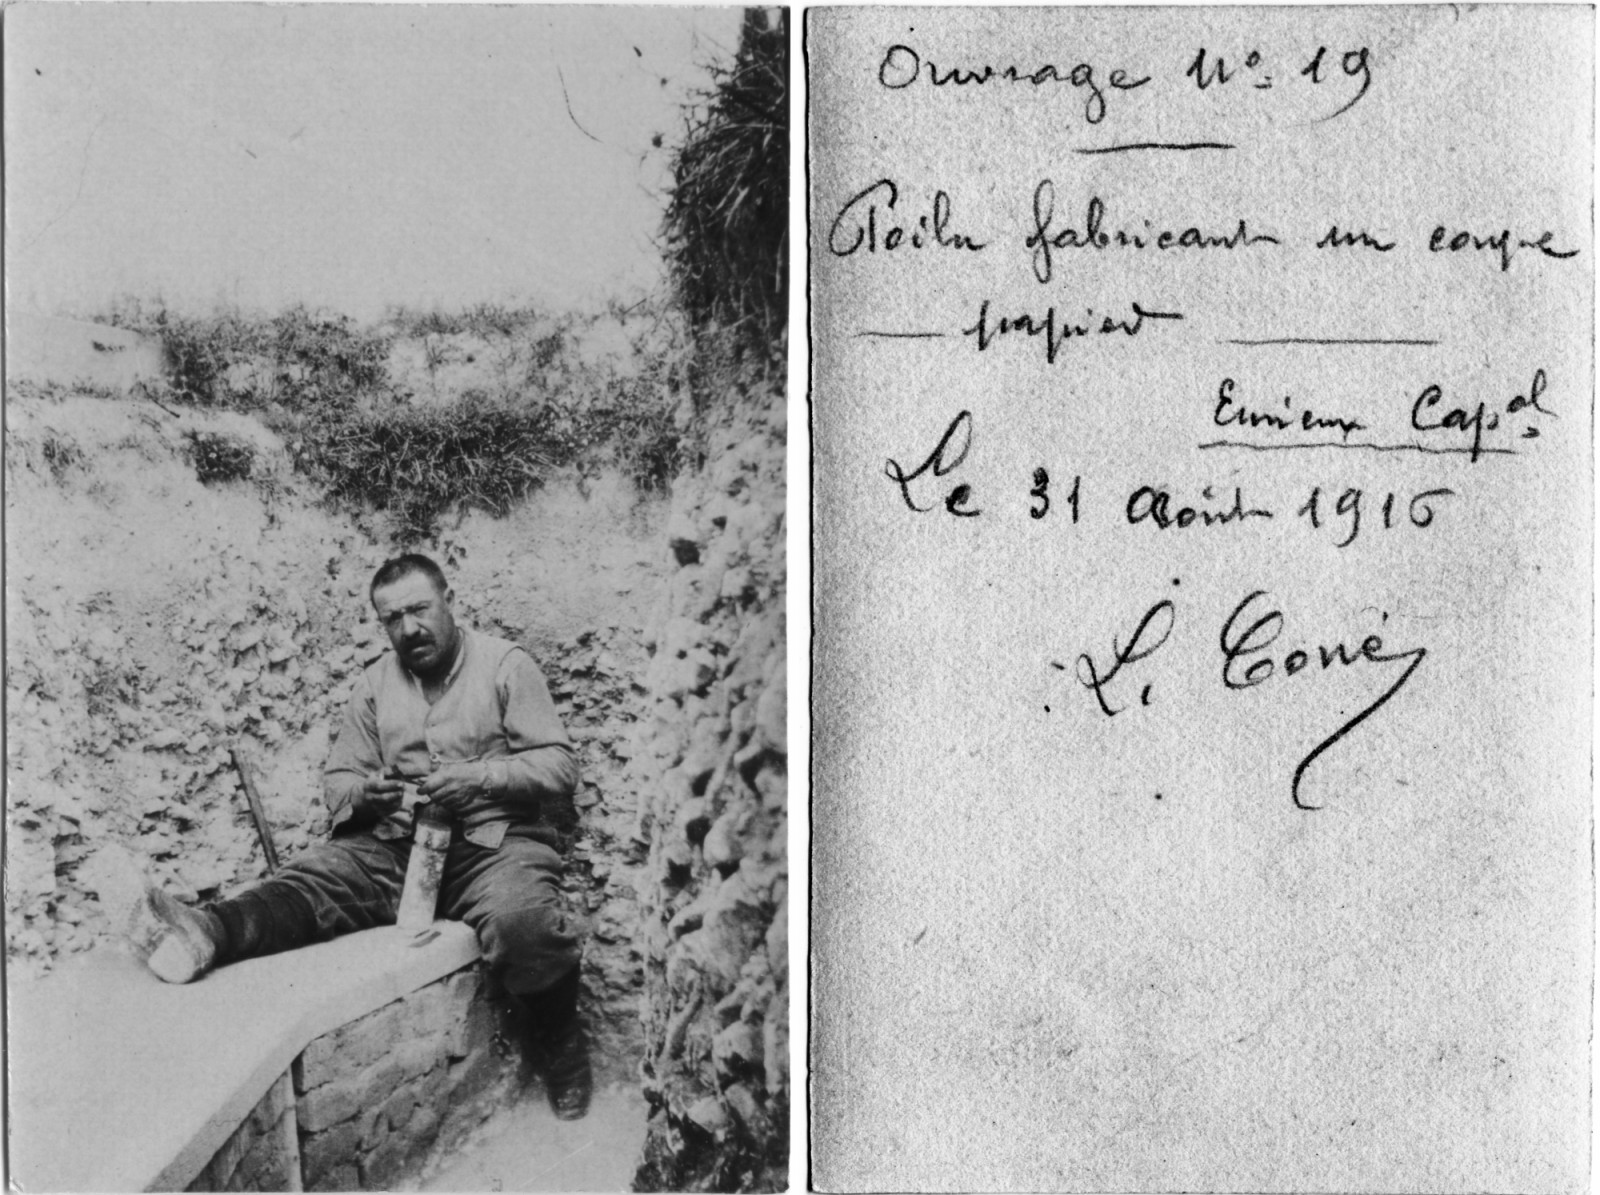 Ouvrage N° 19
Poilu fabricant un coupe
— papier —
Eurieux Cap^al
Le 31 Août 1916
L. Torré